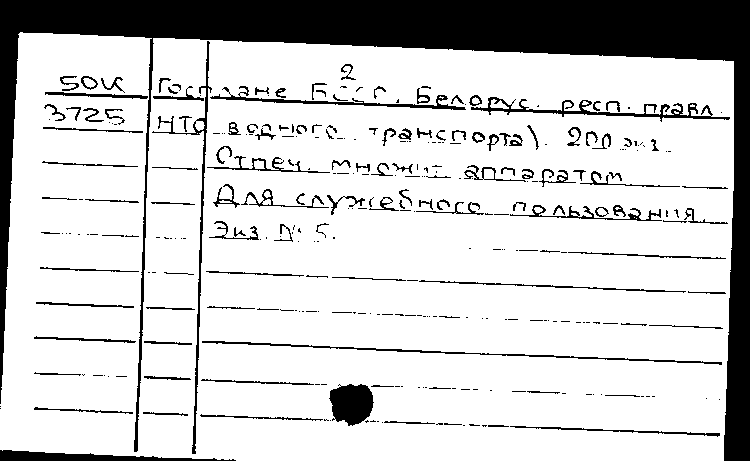 2
50К Госплане БССР, Белорус. респ. правл.
3725 НТО водного транспорта). 200 экз.
Отпеч. множит. аппаратом
Для служебного пользования.
Экз. № 5.